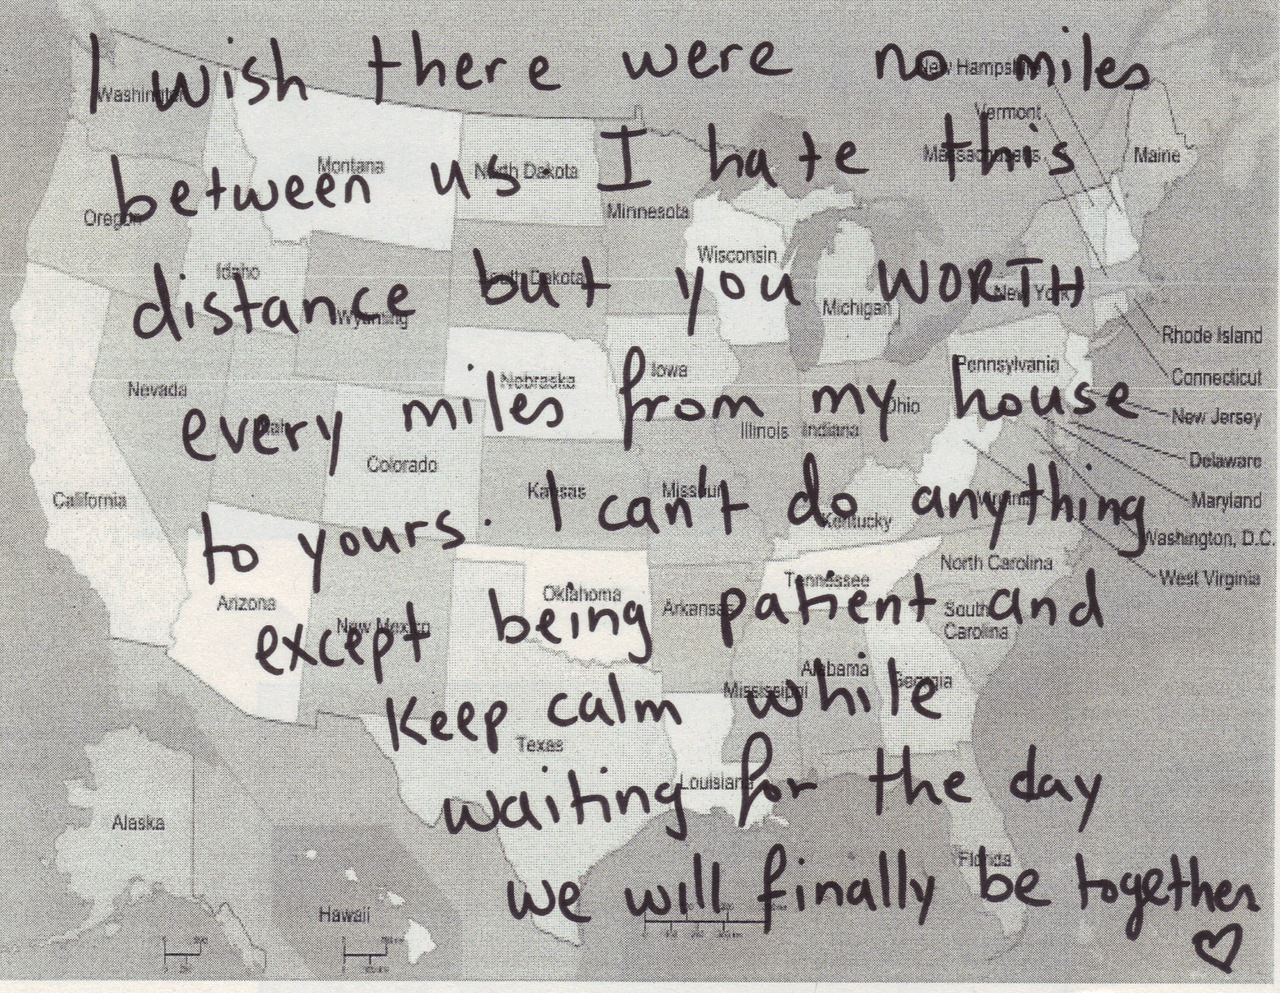 I wish there were no miles
between us. I hate this
distance but you WORTH
every miles from my house
to yours. I can't do anything
except being patient and
Keep calm while
waiting for the day
we will finally be together
Washington
Montana
North Dakota
Minnesota
New Hampshire
Vermont
Massachusetts
Maine
Oregon
Idaho
Wyoming
South Dakota
Wisconsin
Michigan
New York
Rhode Island
Connecticut
New Jersey
Delaware
Maryland
Washington, D.C.
West Virginia
Nevada
Utah
Colorado
Nebraska
Iowa
Illinois
Indiana
Ohio
Pennsylvania
California
Kansas
Missouri
Kentucky
Virginia
Arizona
New Mexico
Oklahoma
Arkansas
Tennessee
North Carolina
South
Carolina
Texas
Louisiana
Mississippi
Alabama
Georgia
Florida
Alaska
Hawaii